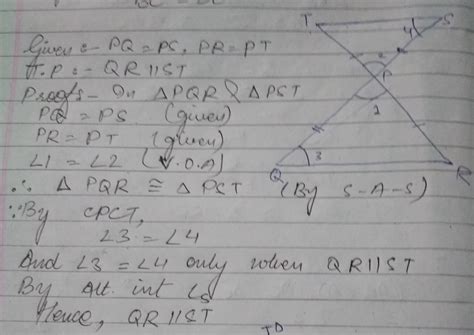 Given :- PQ = PS, PR = PT
T.P :- QR || ST
Proof :- In △PQR & △PST
PQ = PS (given)
PR = PT (given)
∠1 = ∠2 (V.O.A)
∴ △ PQR ≅ △ PST (By S-A-S)
∵ By CPCT,
∠3 = ∠4
And ∠3 = ∠4 only when QR || ST
By Alt. int ∠s
Hence, QR || ST
T S
4
2
P
1
3
Q R